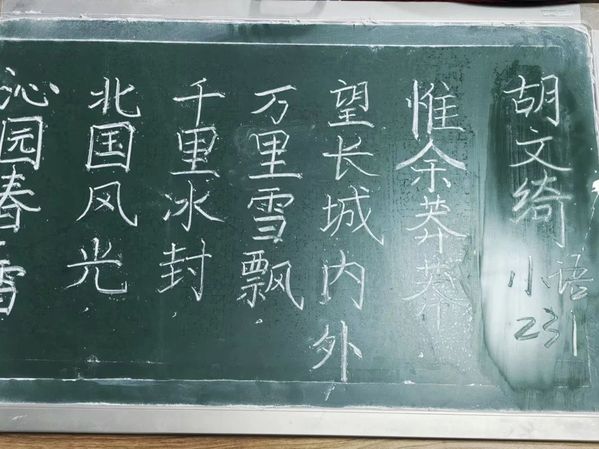 沁园春·雪
北国风光
千里冰封
万里雪飘
望长城内外
惟余莽莽
胡文绮
小语
231